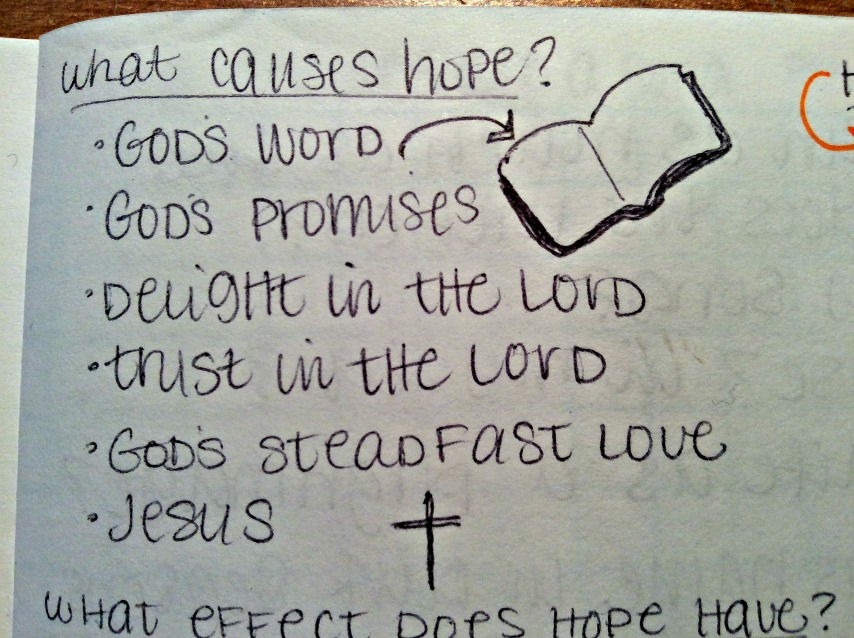 what causes hope?
• GOD'S WORD
• GOD'S promises
• Delight in the LORD
• trust in the LORD
• GOD'S steadfast love
• Jesus
WHAT effect Does Hope Have?